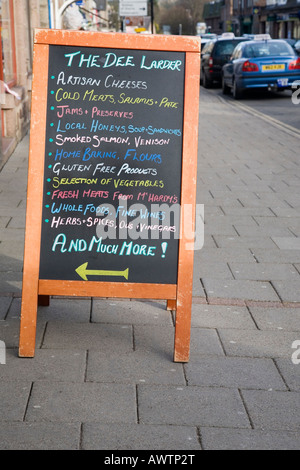 THE DEE LARDER
ARTISAN CHEESES
COLD MEATS, SALAMIS + PATE
JAMS + PRESERVES
LOCAL HONEYS, SOUP + SANDWICHES
SMOKED SALMON, VENISON
HOME BAKING, FLOURS
GLUTEN FREE PRODUCTS
SELECTION OF VEGETABLES
FRESH MEATS FROM MCHARDYS
WHOLE FOODS, FINE WINES
HERBS + SPICES, OILS + VINEGARS
AND MUCH MORE!
alamy
Image ID: AWTP2T
www.alamy.com